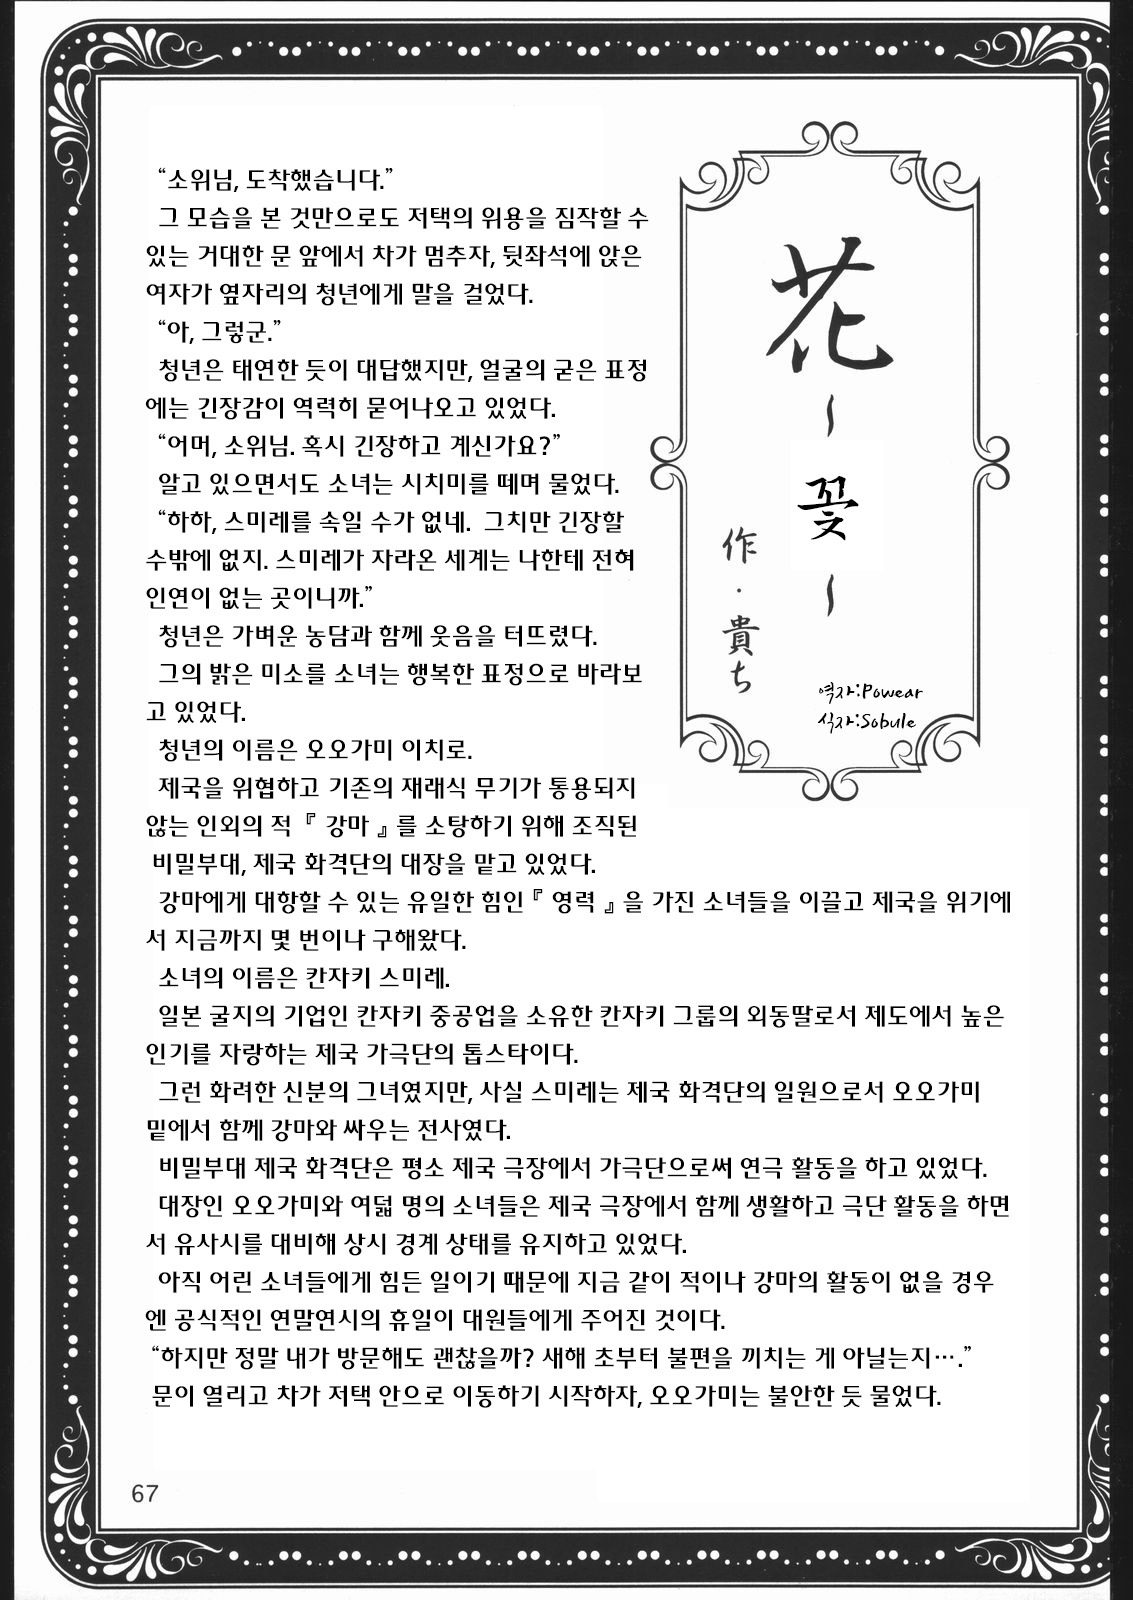 花
~
꽃
~
作・貴ち
역자:Powear
식자:Sobule
“소위님, 도착했습니다.”
그 모습을 본 것만으로도 저택의 위용을 짐작할 수
있는 거대한 문 앞에서 차가 멈추자, 뒷좌석에 앉은
여자가 옆자리의 청년에게 말을 걸었다.
“아, 그렇군.”
청년은 태연한 듯이 대답했지만, 얼굴의 굳은 표정
에는 긴장감이 역력히 묻어나오고 있었다.
“어머, 소위님. 혹시 긴장하고 계신가요?”
알고 있으면서도 소녀는 시치미를 떼며 물었다.
“하하, 스미레를 속일 수가 없네. 그치만 긴장할
수밖에 없지. 스미레가 자라온 세계는 나한테 전혀
인연이 없는 곳이니까.”
청년은 가벼운 농담과 함께 웃음을 터뜨렸다.
그의 밝은 미소를 소녀는 행복한 표정으로 바라보
고 있었다.
청년의 이름은 오오가미 이치로.
제국을 위협하고 기존의 재래식 무기가 통용되지
않는 인외의 적 『 강마 』를 소탕하기 위해 조직된
비밀부대, 제국 화격단의 대장을 맡고 있었다.
강마에게 대항할 수 있는 유일한 힘인『 영력 』을 가진 소녀들을 이끌고 제국을 위기에
서 지금까지 몇 번이나 구해왔다.
소녀의 이름은 칸자키 스미레.
일본 굴지의 기업인 칸자키 중공업을 소유한 칸자키 그룹의 외동딸로서 제도에서 높은
인기를 자랑하는 제국 가극단의 톱스타이다.
그런 화려한 신분의 그녀였지만, 사실 스미레는 제국 화격단의 일원으로서 오오가미
밑에서 함께 강마와 싸우는 전사였다.
비밀부대 제국 화격단은 평소 제국 극장에서 가극단으로써 연극 활동을 하고 있었다.
대장인 오오가미와 여덟 명의 소녀들은 제국 극장에서 함께 생활하고 극단 활동을 하면
서 유사시를 대비해 상시 경계 상태를 유지하고 있었다.
아직 어린 소녀들에게 힘든 일이기 때문에 지금 같이 적이나 강마의 활동이 없을 경우
엔 공식적인 연말연시의 휴일이 대원들에게 주어진 것이다.
“하지만 정말 내가 방문해도 괜찮을까? 새해 초부터 불편을 끼치는 게 아닐는지….”
문이 열리고 차가 저택 안으로 이동하기 시작하자, 오오가미는 불안한 듯 물었다.
67